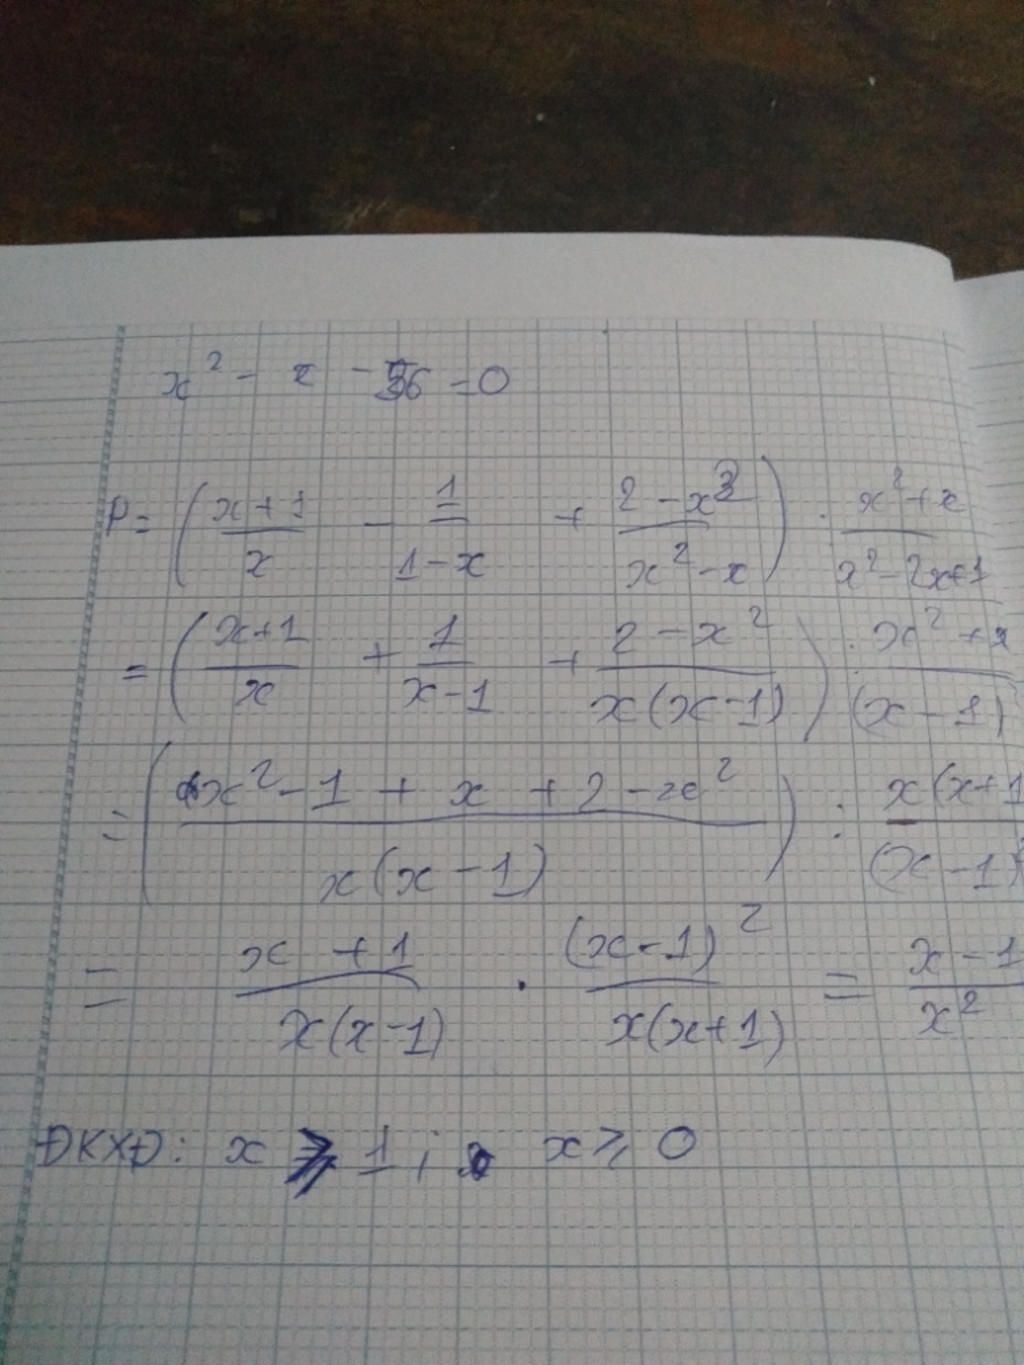 x² - x - 56 = 0
P = ( (x+1)/x - 1/(1-x) + (2-x²)/(x²-x) ) : (x²+x)/(x²-2x+1)
= ( (x+1)/x + 1/(x-1) + (2-x²)/(x(x-1)) ) : (x²+x)/(x-1)
= ( (x²-1+x+2-x²)/(x(x-1)) ) : x(x+1)/(x-1)²
= (x+1)/(x(x-1)) . (x-1)²/(x(x+1)) = (x-1)/x²
ĐKXĐ: x 1; x ⩾ 0